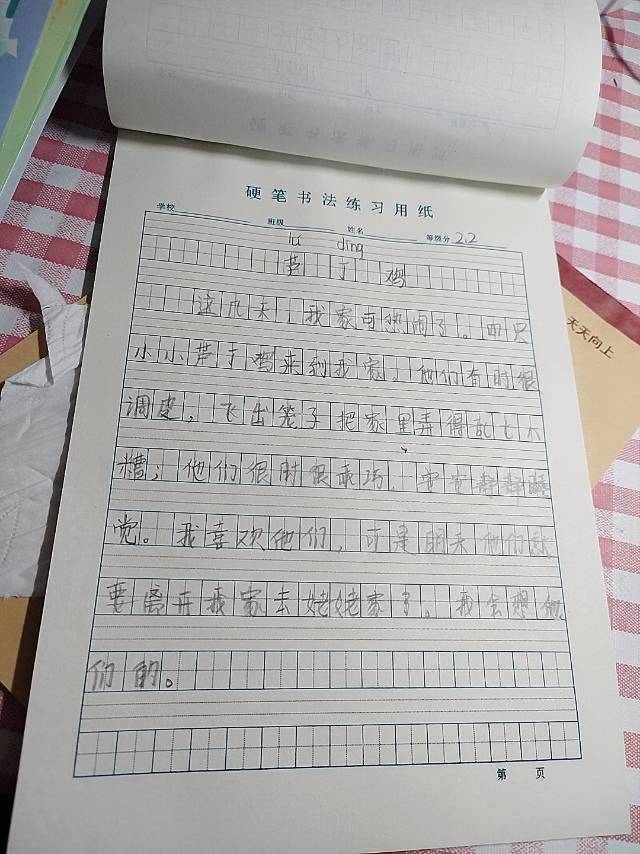 硬笔书法练习用纸
学校 班级 姓名 等级分 22
lú dīng
芦丁鸡
这几天,我家可热闹了。四只
小小芦丁鸡来到我家,他们有时很
调皮,飞出笼子把家里弄得乱七八
糟;他们很时很乖巧,安安静静睡
觉。我喜欢他们,可是明天他们就
要离开我家去姥姥家了。我会想他
们的。
第 页
天天向上